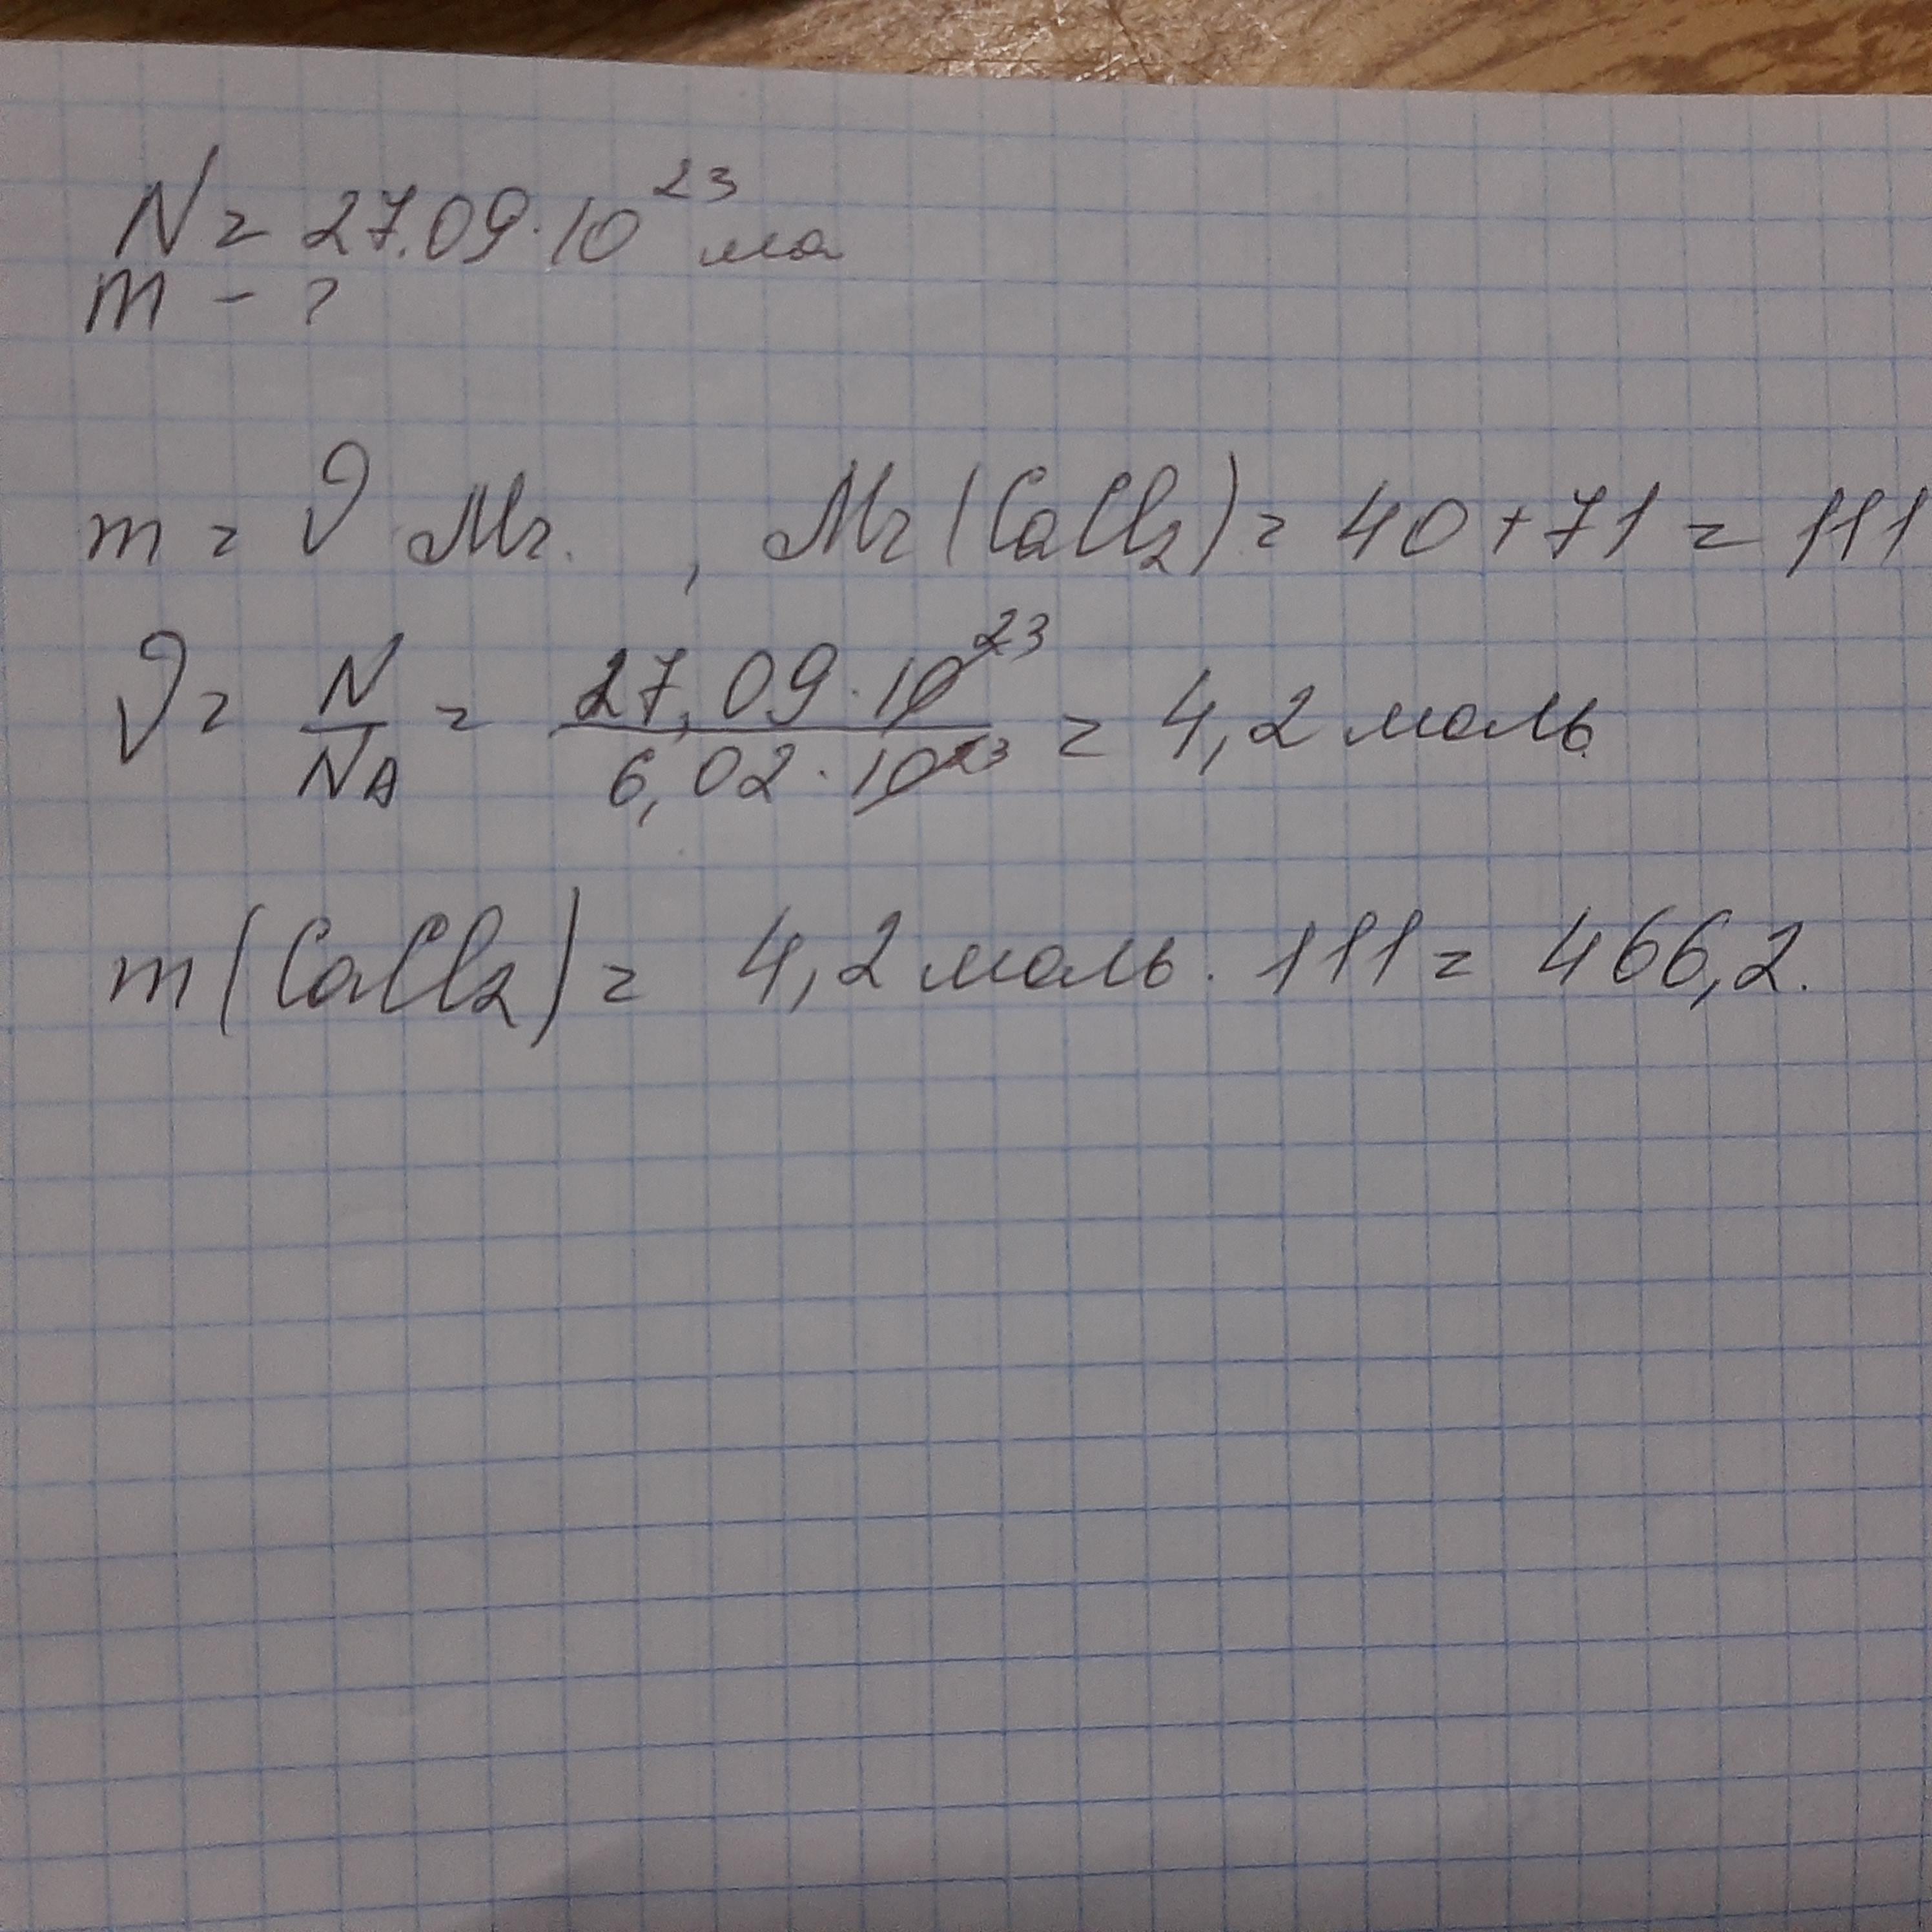 N = 27.09·10²³ ма
m - ?
m = ϑ Mr. , Mr(CaCl₂) = 40 + 71 = 111
ϑ = N/NA = 27,09·10²³/6,02·10²³ = 4,2 моль
m(CaCl₂) = 4,2 моль · 111 = 466,2.